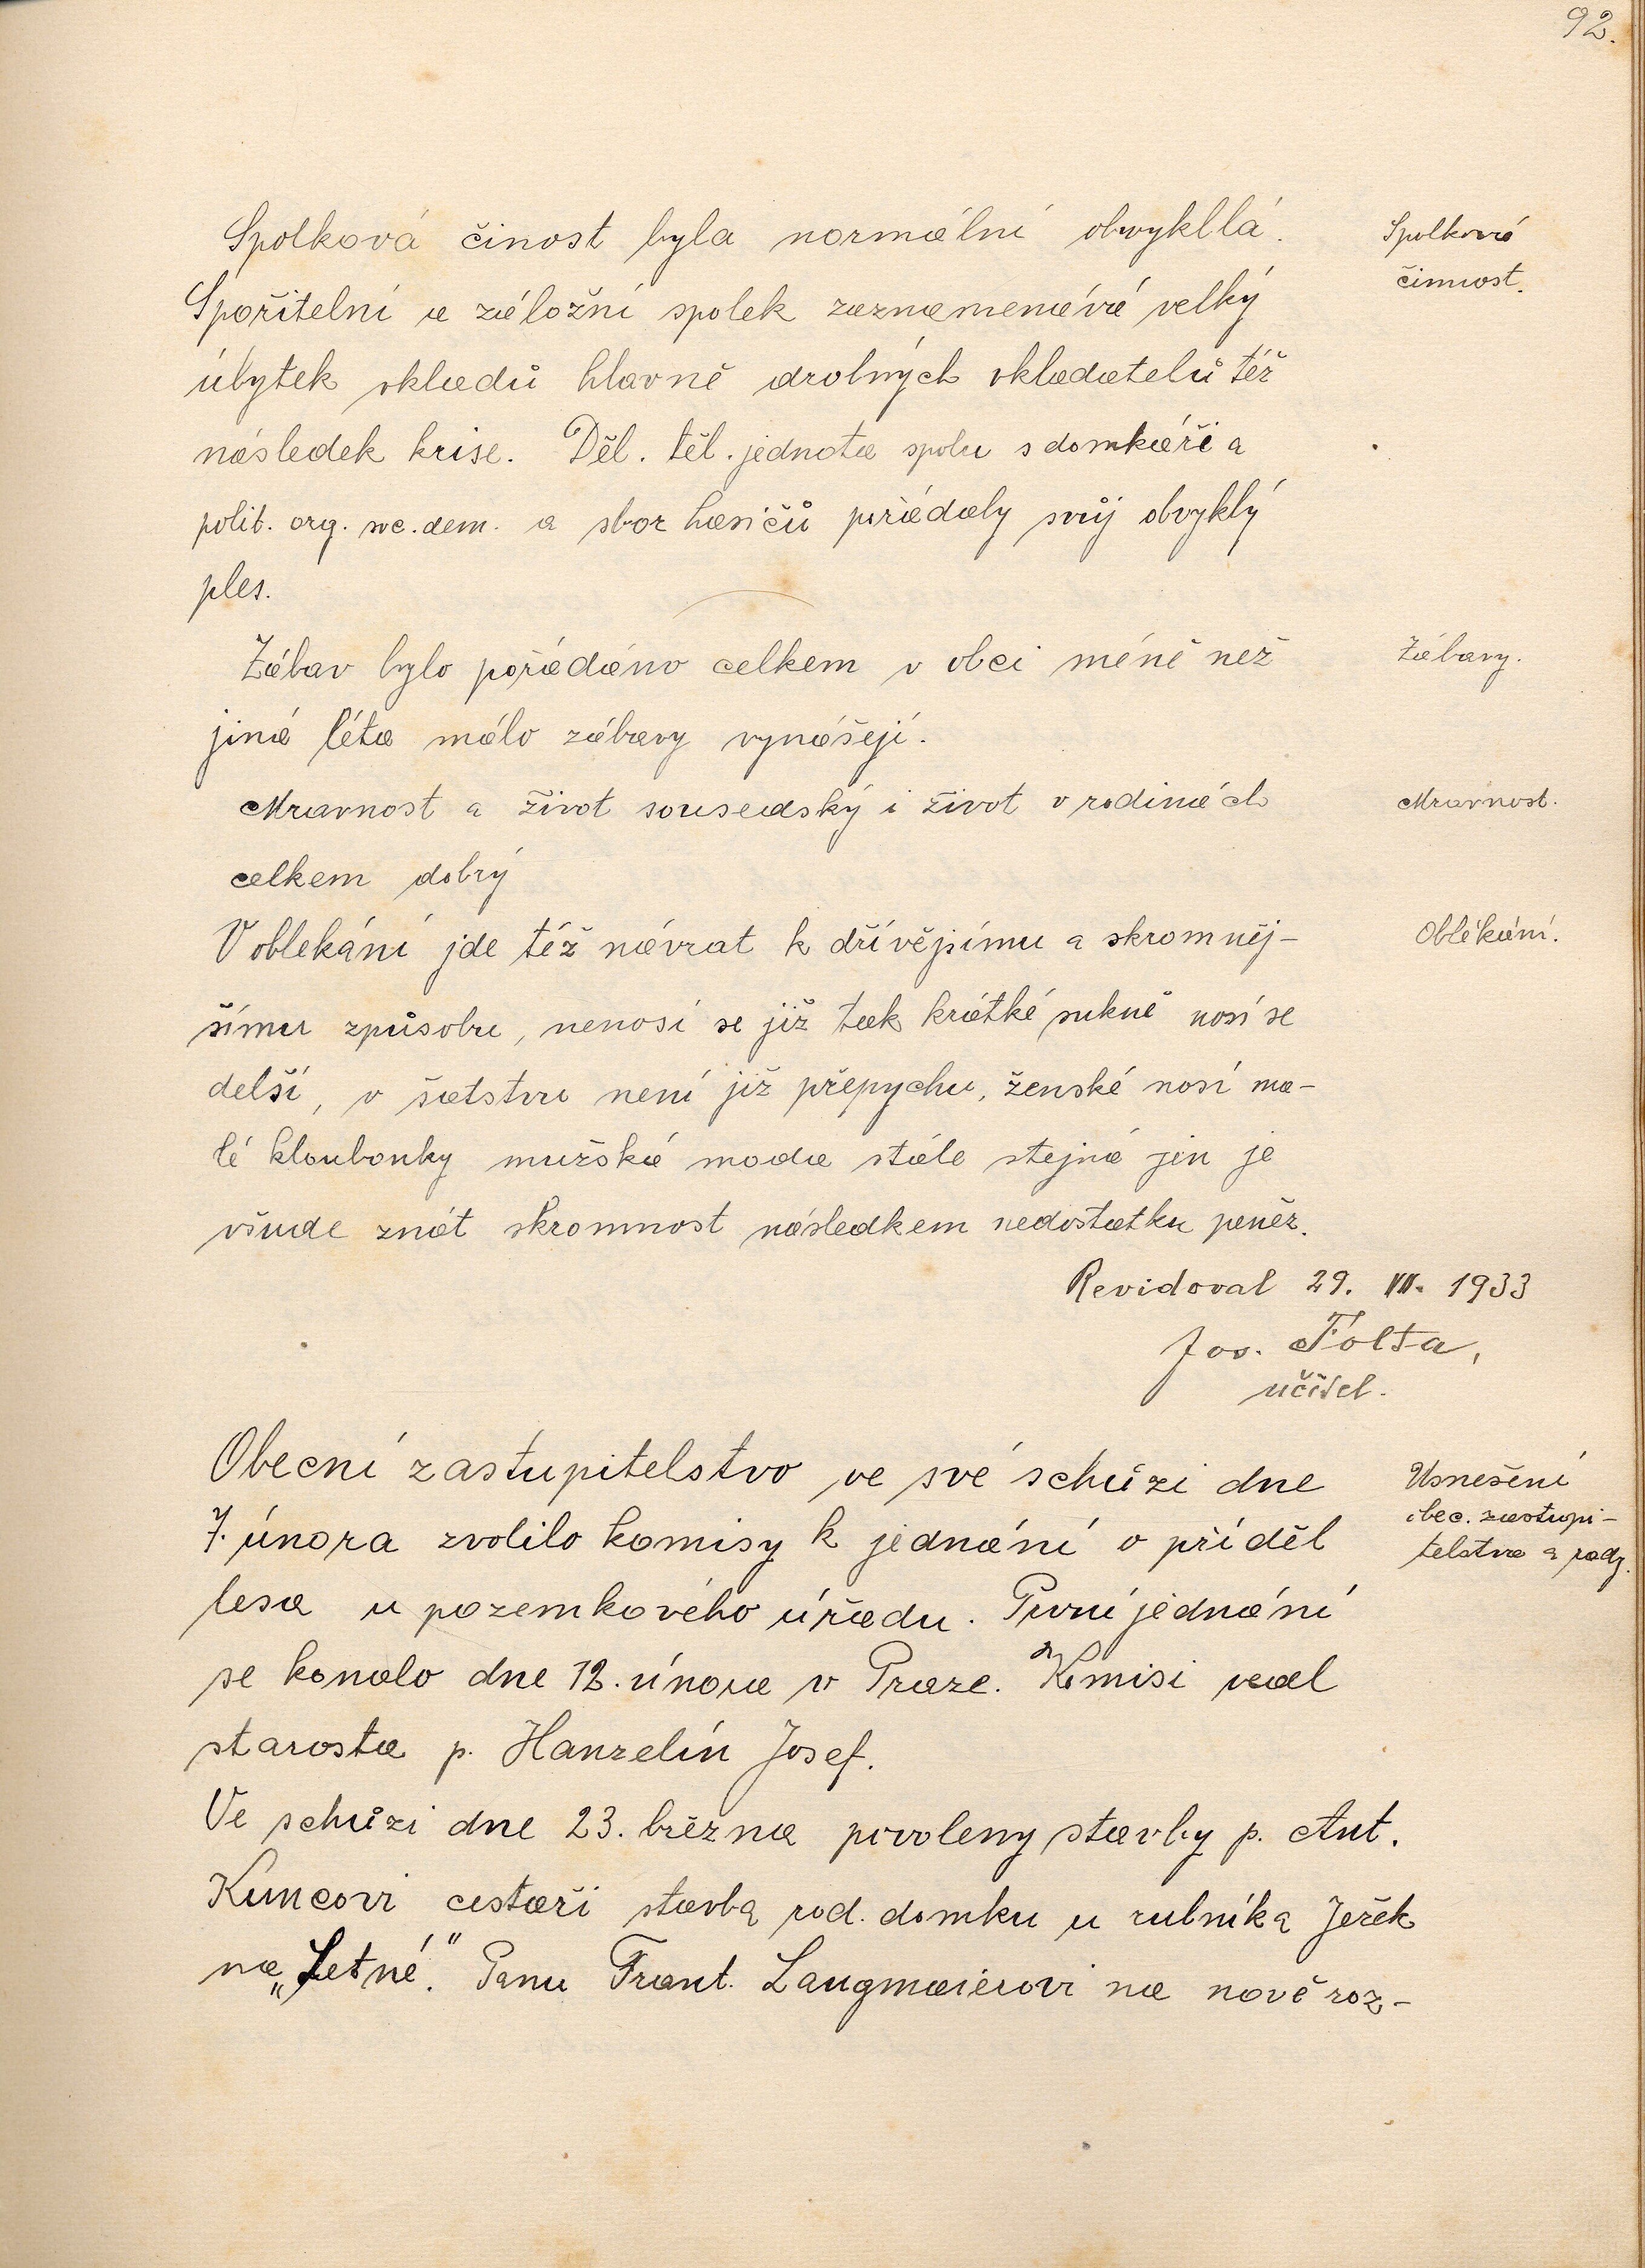 92.
Spolková činost byla normální obvykllá.
Spolková
činnost.
Spořitelní a záložní spolek zaznamenává velký
úbytek vkladů hlavně drobných vkladatelů též
následek krise. Děl. těl. jednota spolu s domkáři a
polit. org. soc. dem. a sbor hasičů pořádaly svůj obvyklý
ples.
Zábav bylo pořádáno celkem v obci méně než
Zábavy.
jiná léta málo zábavy vynášejí.
Mravnost a život sousedský i život v rodinách
Mravnost.
celkem dobrý
V oblekání jde též návrat k dřívějsímu a skromněj-
Oblékání.
šímu způsobu, nenosí se již tak krátké sukně nosí se
delší, v šatstvu není již přepychu, ženské nosí ma-
lé kloubouky mužská moda stále stejná jen je
všude znát skromnost následkem nedostatku peněz.
Revidoval 29. VII. 1933
Jos. Folta,
učitel.
Obecní zastupitelstvo ve své schůzi dne
Usnešení
obec. zastupi-
telstva a rady.
7. února zvolilo komisy k jednání o příděl
lesa u pozemkového úřadu. První jednání
se konalo dne 12. února v Praze. Komisi vedl
starosta p. Hanzelín Josef.
Ve schůzi dne 23. března povoleny stavby p. Ant.
Kuncovi cestaři stavba rod. domku u rubníka Jeřék
na „Letné." Panu Frant. Langmaierovi na nově roz-